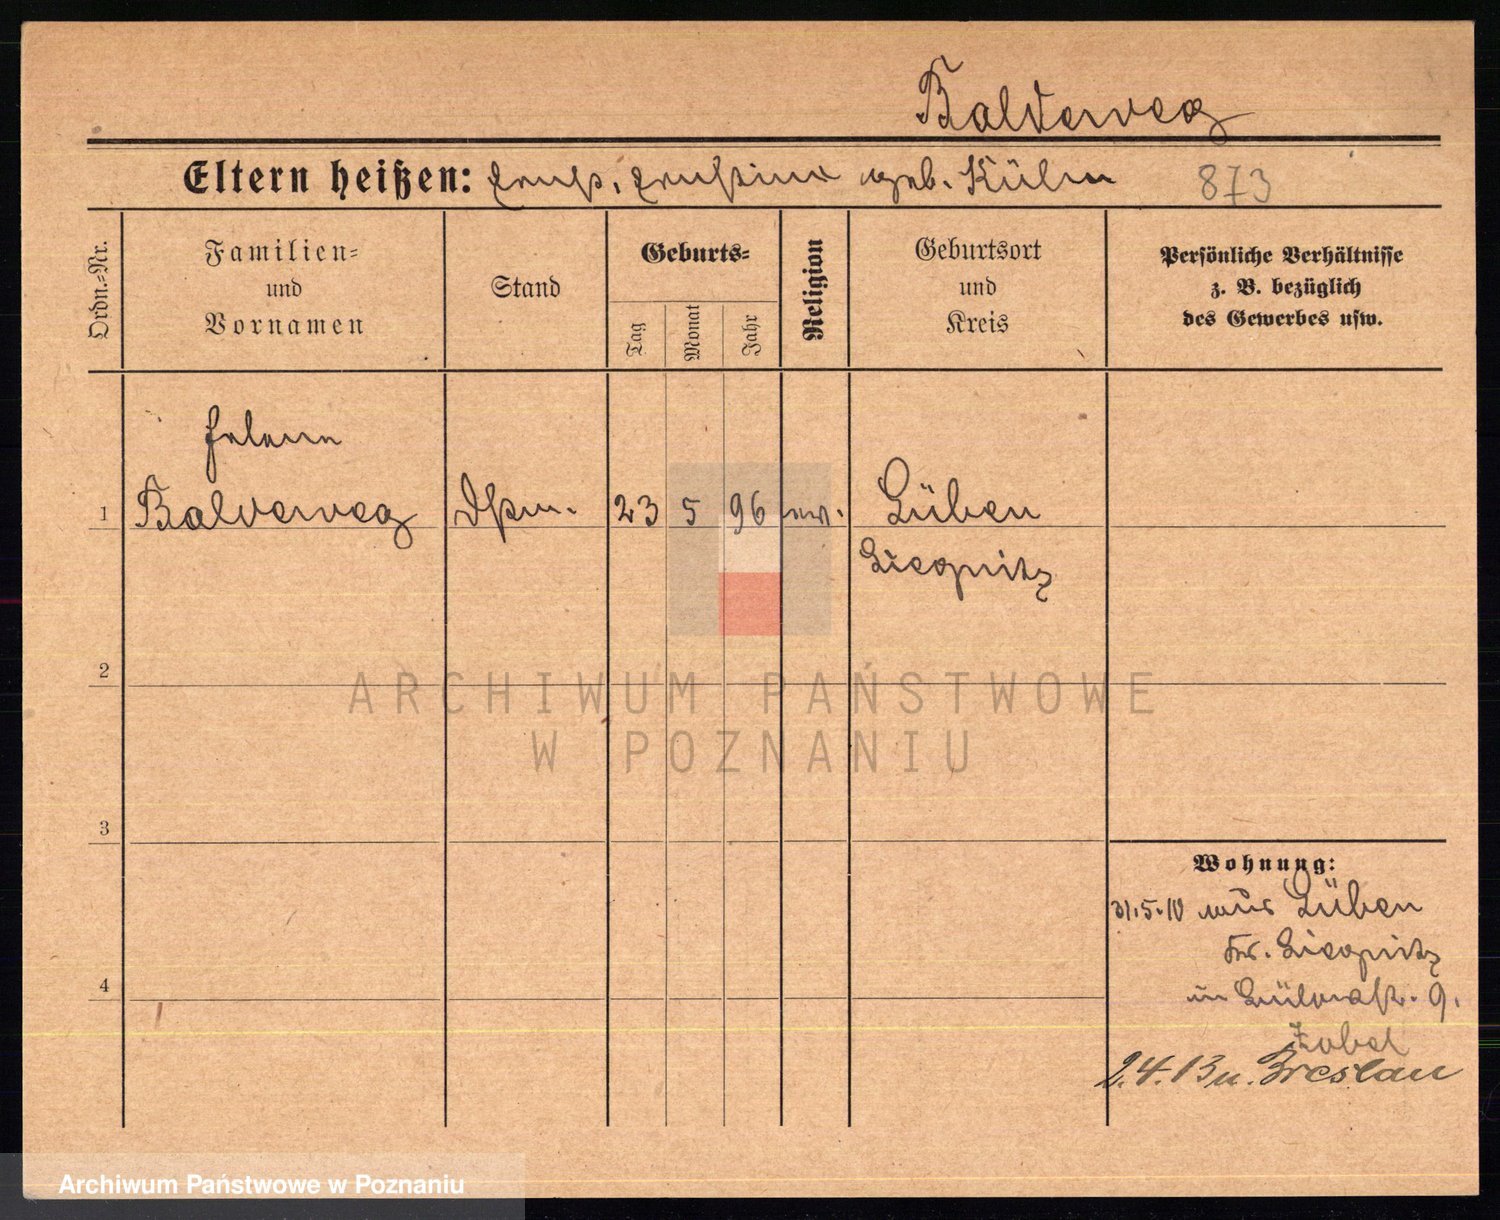 Balderweg
Eltern heißen: Ernst, Ernstine geb. Kühn 873
Ordn.-Nr.
Familien-
und
Vornamen
Stand
Geburts-
Tag
Monat
Jahr
Religion
Geburtsort
und
Kreis
Persönliche Verhältnisse
z. B. bezüglich
des Gewerbes usw.
Helene
1 Balderweg Dstm. 23 5 96 ev. Lüben
Liegnitz
2
3
4
Wohnung:
31.5.10 aus Lüben
Kr. Liegnitz
9.
Zobel
2.4.13 n. Breslau
ARCHIWUM PAŃSTWOWE
W POZNANIU
Archiwum Państwowe w Poznaniu